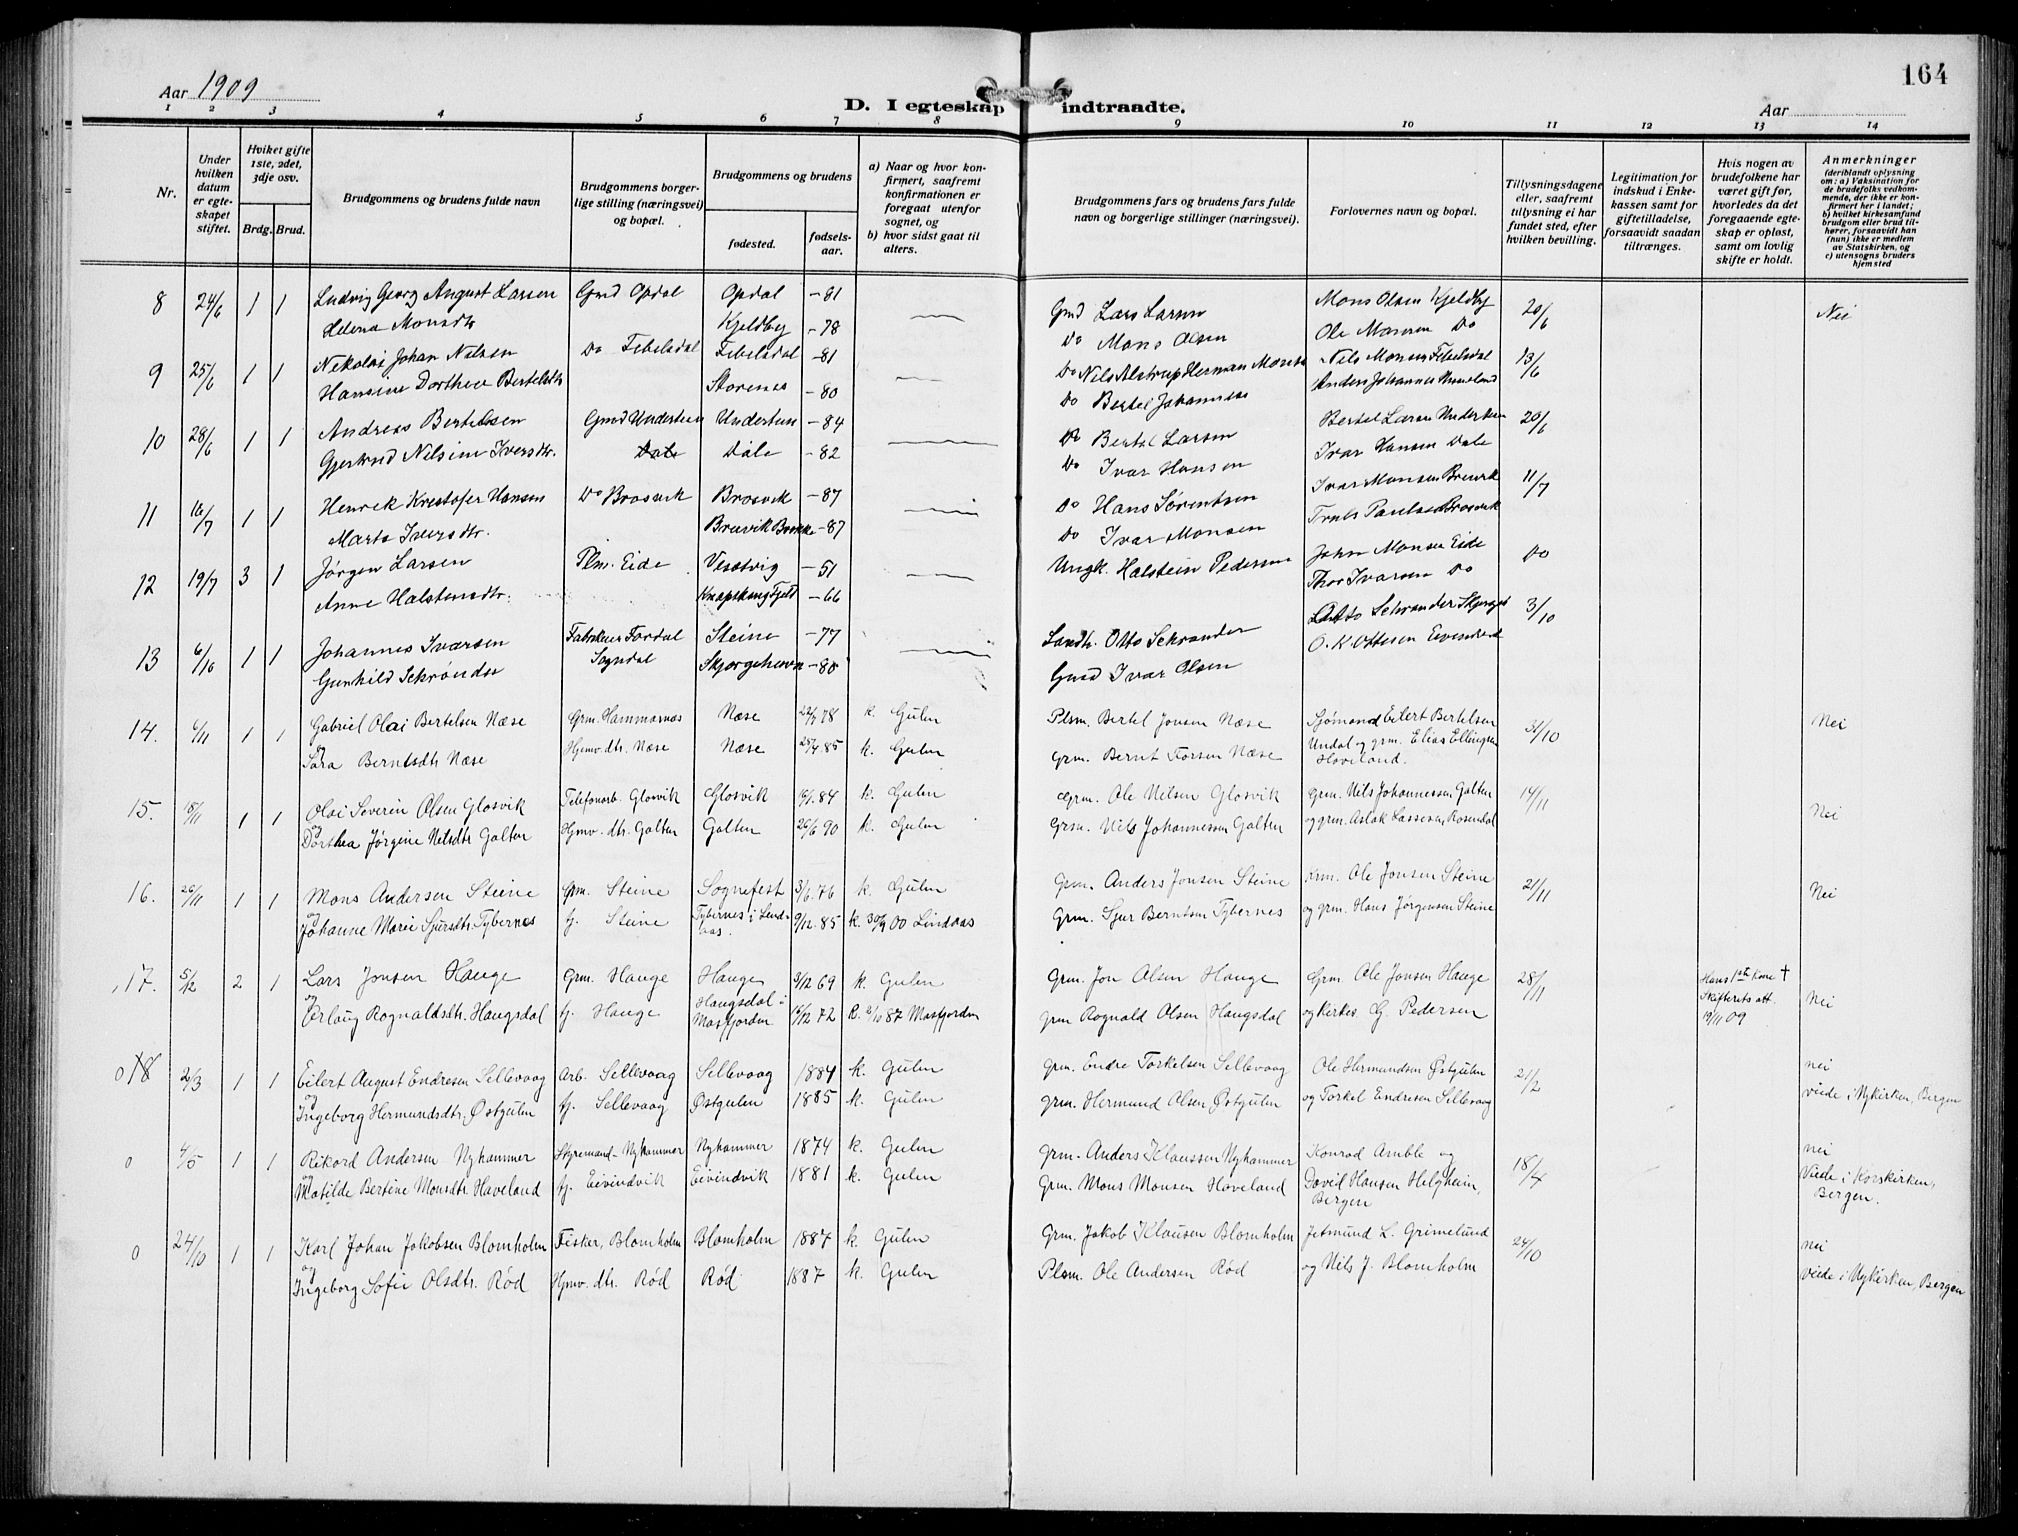 164
Aar 1909
D. I egteskap indtraadte.
Aar
1 2 3 4 5 6 7 8 9 10 11 12 13 14
Nr.
Under hvilken datum er egteskapet stiftet.
Hviket gifte 1ste, 2det, 3dje osv.
Brdg. Brud.
Brudgommens og brudens fulde navn
Brudgommens borgerlige stilling (næringsvei) og bopæl.
Brudgommens og brudens
fødested.
fødselsaar.
a) Naar og hvor konfirmert, saafremt konfirmationen er foregaat utenfor sognet, og
b) hvor sidst gaat til alters.
Brudgommens fars og brudens fars fulde navn og borgerlige stillinger (næringsvei).
Forlovernes navn og bopæl.
Tillysningsdagene eller, saafremt tillysning ei har fundet sted, efter hvilken bevilling.
Legitimation for indskud i Enkekassen samt for giftetilladelse, forsaavidt saadan tiltrænges.
Hvis nogen av brudefolkene har været gift før, hvorledes da det foregaaende egteskap er opløst, samt om lovlig skifte er holdt.
Anmerkninger (deriblandt oplysning om: a) Vaksination for de brudefolks vedkommende, der ikke er konfirmert her i landet; b) hvilket kirkesamfund brudgom eller brud tilhører, forsaavidt han (hun) ikke er medlem av Statskirken, og c) utensogns bruders hjemsted
8 24/6 1 1 Ludvig Georg August Larsen Gmd Opdal Opdal -81 Gmd Lars Larsen Mons Olsen Kjeldby 20/6 Nei
Helena Monsdtr Kjeldby -78 Do Mons Olsen Ole Monsen Do
9 25/6 1 1 Nikolai Johan Nilsen Do Febelsdal Febelsdal -81 Do Nils Alstrup Herman Nils Monsen Febelsdal 13/6
Hansine Dorthea Bertelsdtr Storenes -80 Do Bertel Johannes Anders Johannes
10 28/6 1 1 Andreas Bertelsen Gmd Undertun Undertun -84 Do Bertel Larsen Bertel Larsen Undertun 20/6
Gjertrud Nilsine Iversdtr. Dale Dale -82 Do Ivar Hansen Ivar Hansen Dale
11 16/7 1 1 Henrik Krestofer Hansen Do Brosvik Brosvik -87 Do Hans Sørentsen Ivar Monsen Brevik 11/7
Marta Iversdtr. Brevik -87 Do Ivar Monsen Paulsen Brosvik
12 19/7 3 1 Jørgen Larsen Plm. Eide -51 Ungk. Halstein Pedersen John Monsen Eide Do
Anne Halstensdtr. -66 Thor Ivarsen Do
13 6/10 1 1 Johannes Ivarsen Fordal Steine -77 Landh. Otto Schrønder Otto Schrønder 3/10
Gunhild Schrønder Sogndal Skjergehavn -80 Gmd Ivar Olsen O. K. Ottesen Eivindvik
14. 6/11 1 1 Gabriel Olai Bertelsen Næse Grm. Hammarnæs Næse 78 k. Gulen Plsm. Bertel Jonsen Næse Sjømand Eilert Bertelsen 31/10 Nei
og Sara Berntsdtr. Næse Hjmv. dtr. Næse Næse 25/4 85 k. Gulen Grm. Bernt Torsen Næse Undal og grm. Elias Ellingsen Haveland.
15. 18/11 1 1 Olai Severin Olsen Glosvik Telefonarb. Glosvik Glosvik 19/1 84 k. Gulen Grm. Ole Nilsen Glosvik Grm. Nils Johannessen Galten 14/11 Nei
og Dorthea Jørgine Nilsdtr. Galten Hjmv. dtr. Galten Galten 26/6 90 k. Gulen Grm. Nils Johannessen Galten og grm. Aslak Lassesen Rosendal
16. 26/11 1 1 Mons Andersen Steine Grm. Steine Sognefest 3/6.76 k. Gulen Grm. Anders Jonsen Steine Grm. Ole Jonsen Steine 21/11 Nei
og Johanne Marei Sjursdtr. Tybernes tj. Steine Tybernes i Lindaas. 9/12.85 k. 30/9 00 Lindaas Grm. Sjur Berntsen Tybernes og grm. Hans Jørgensen Steine
17. 5/12 2 1 Lars Jonsen Hauge Grm. Hauge Hauge 3/12 69 k. Gulen Grm. Jon Olsen Hauge Grm. Ole Jonsen Hauge 28/11 Hans 1ste kone † Skifterets att. 19/11 09 Nei
og Erlaug Rognaldsdtr. Haugsdal tj. Hauge Haugsdal i Masfjorden 72 k. 2/10 87 Masfjorden grm Rognald Olsen Haugsdal og kirkes. G. Pedersen
0 18 2/3 1 1 Eilert August Endresen Sellevaag Arb. Sellevaag Sellevaag 1884 k. Gulen Grm. Endre Torkelsen Sellevaag Ole Hermundsen Østgulen 21/2 nei
og Ingeborg Hermundsdtr. Østgulen tj. Sellevaag Østgulen 1885 k. Gulen grm. Hermund Olsen Østgulen og Torkel Endresen Sellevaag viede i Nykirken, Bergen
0 4/5 1 1 Rikard Andersen Nyhammer Styrmand Nyhammer Nyhammer 1874 k. Gulen Grm. Anders Klaussen Nyhammer Konrad Amble og 18/4 nei
og Matilde Bertine Monsdtr. Haveland tj. Eivindvik Eivindvik 1881 k. Gulen Grm. Mons Monsen Haveland David Hansen Helgheim, Bergen Viede i Korskirken, Bergen.
0 24/10 1 1 Karl Johan Jakobsen Blomholm Fisker, Blomholm Blomholm 1887 k. Gulen Grm. Jakob Klausen Blomholm Jetmund L. Grimelund 24/10 nei
og Ingeborg Sofie Olsdtr. Rød Hjmv. dtr. Rød Rød 1887 k. Gulen Plsm. Ole Andersen Rød og Nils J. Blomholm Viede i Nykirken, Bergen